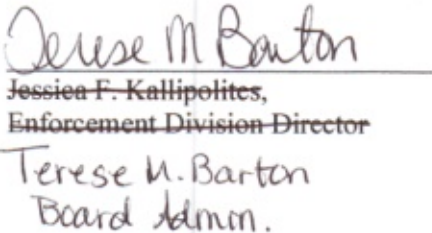 Terese M Barton
Jessica F. Kallipolites,
Enforcement Division Director
Terese M. Barton
Board Admin.